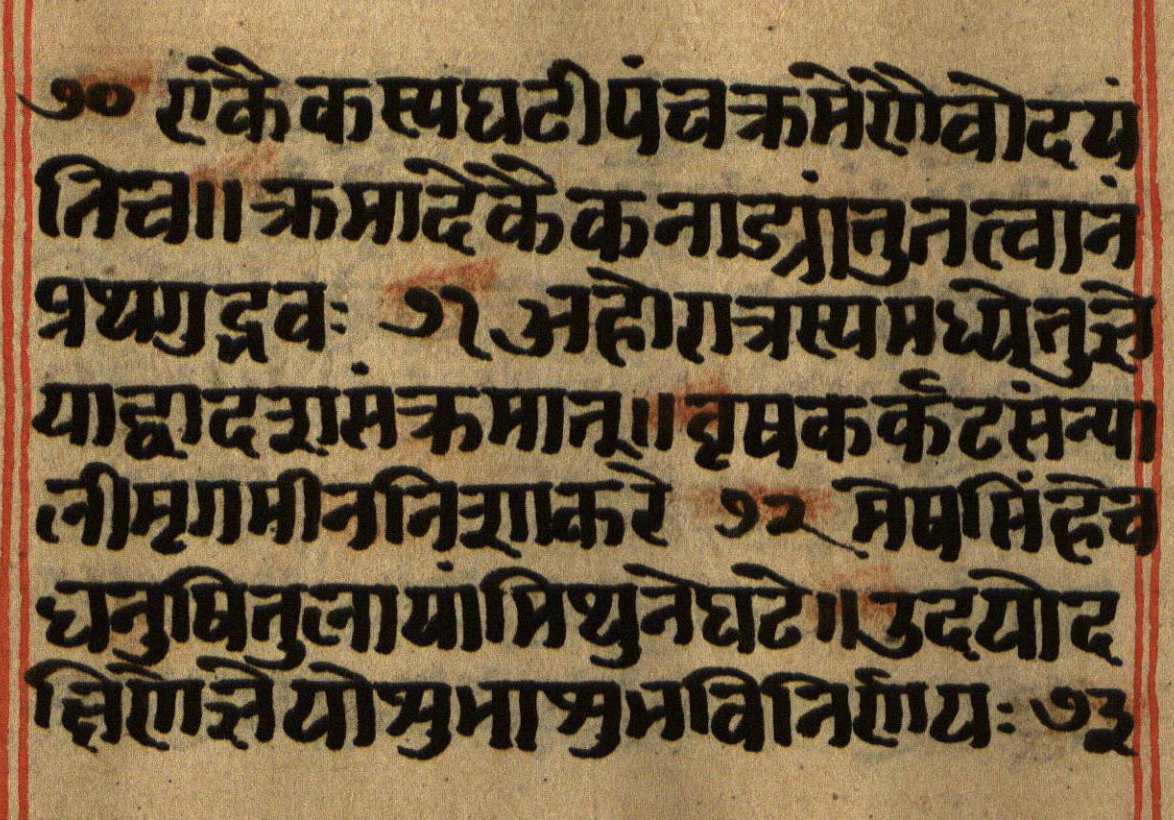 ७० एकैकस्यघटीपंचक्रमेणैवोदयं
तिच॥ क्रमादेकैकनाड्यांतुतत्वानं
प्रथगुद्भवः ७१ अहोरात्रस्यमध्येतुज्ञे
याद्वादशसंक्रमात्॥ वृषकर्कटसंन्या
लीमृगमीननिशाकरे ७२ मेषसिंहेच
धनुषितुलायांमिथुनेघटे॥ उदयोद
क्षिणेज्ञेयोशुभाशुभविनिर्णयः ७३